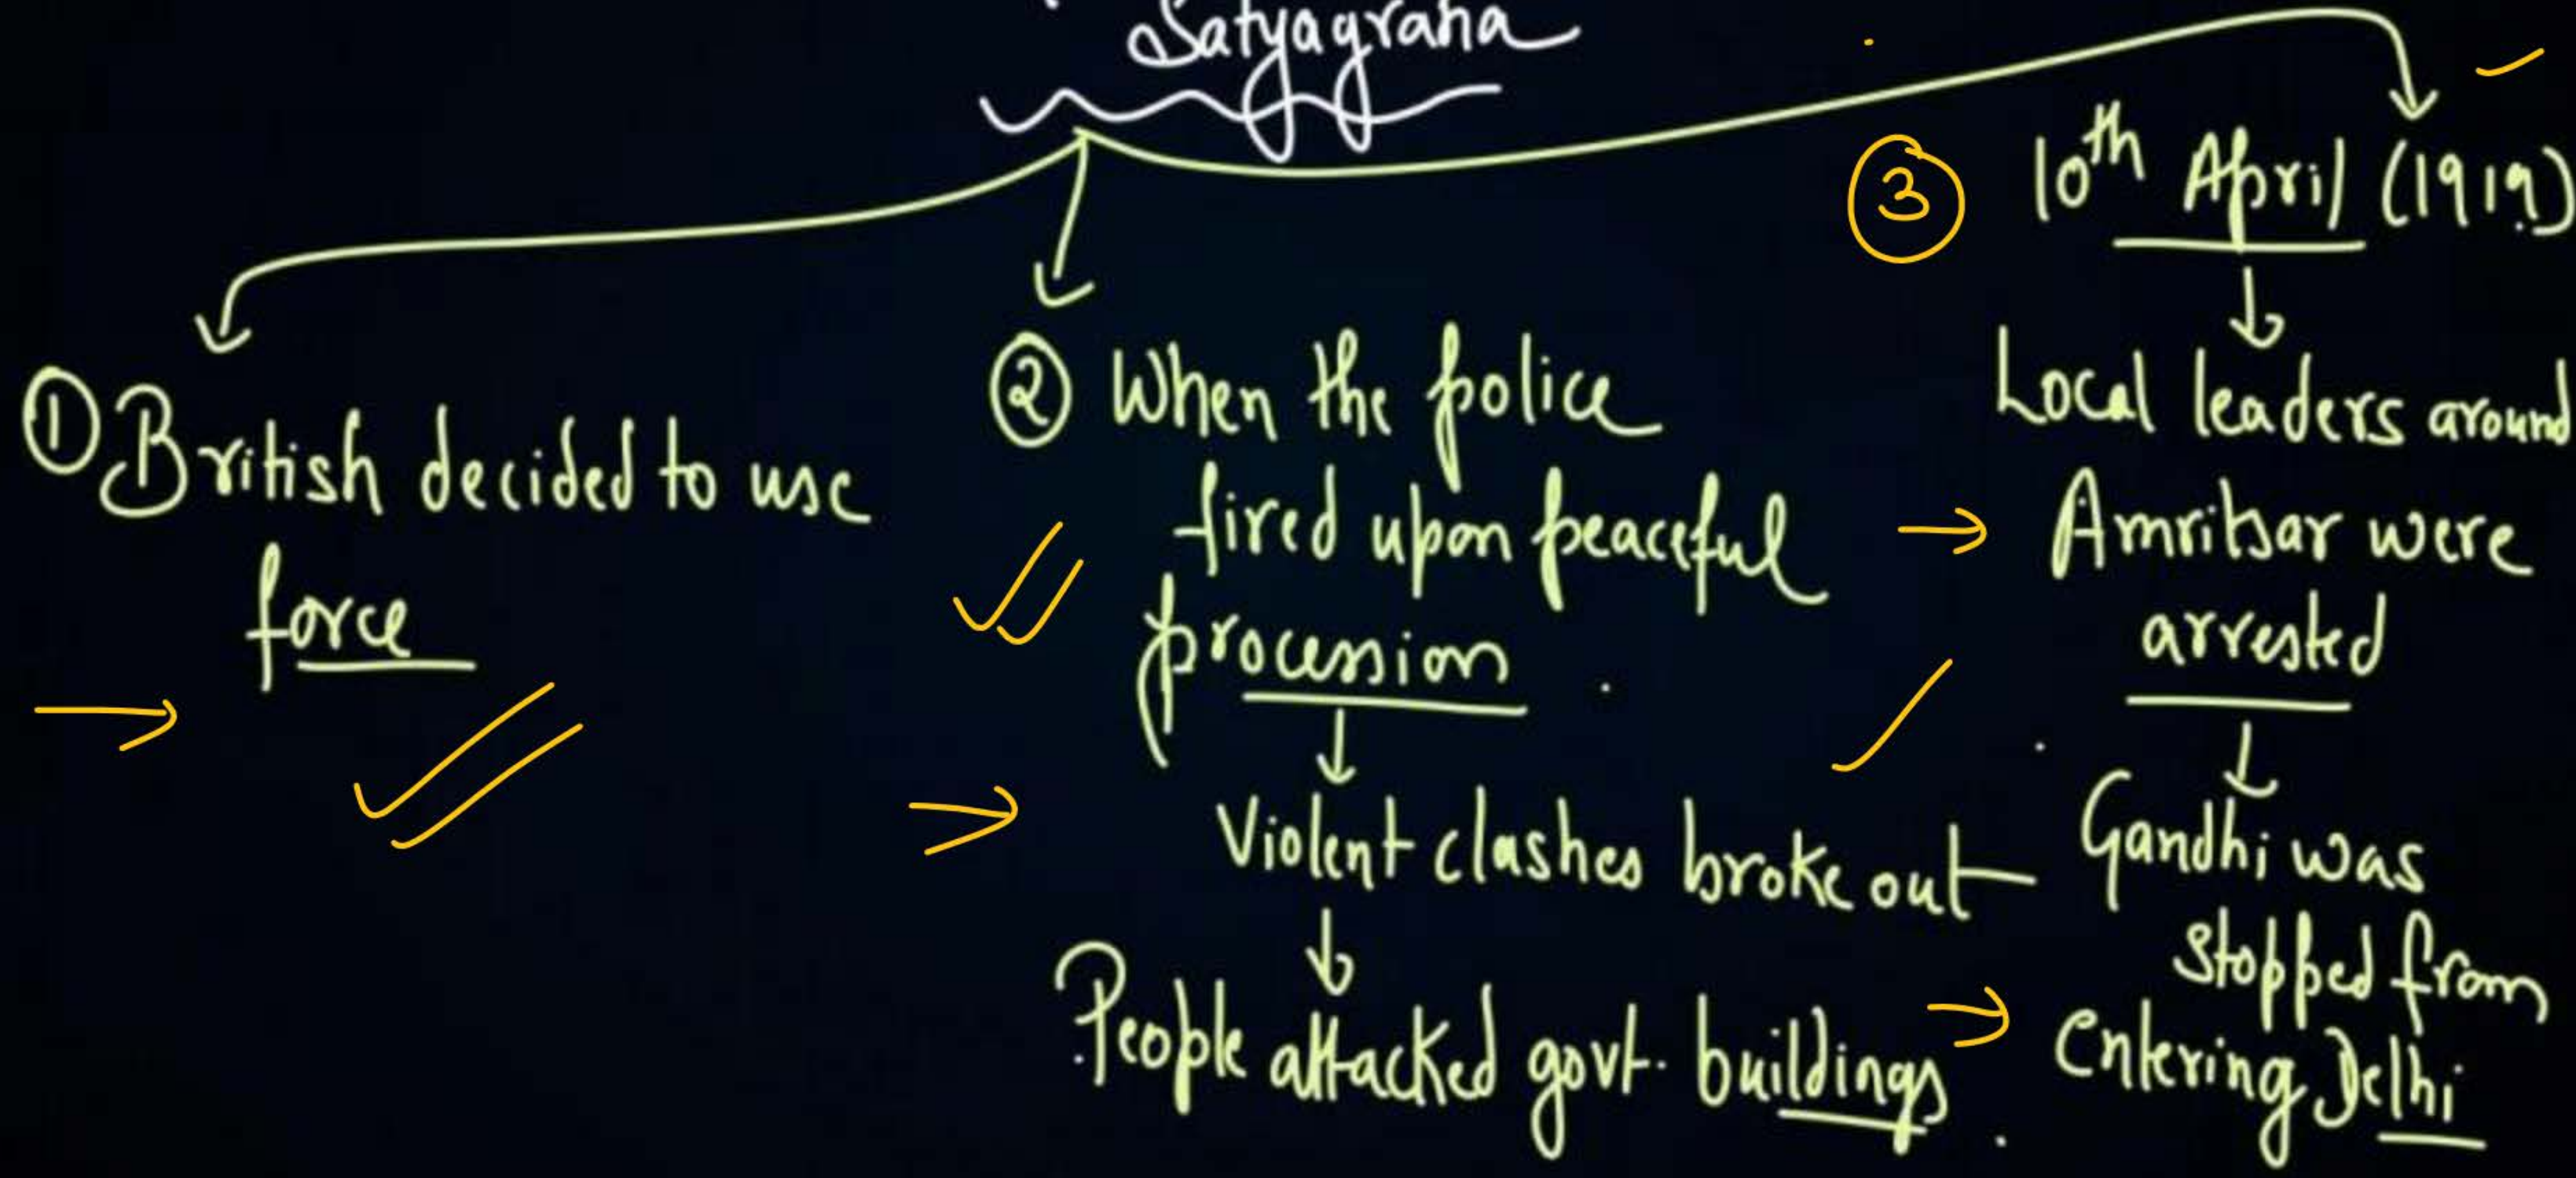 Satyagraha
① British decided to use
force
② When the police
fired upon peaceful
procession
Violent clashes broke out
People attacked govt. buildings
③ 10th April (1919)
Local leaders around
Amritsar were
arrested
Gandhi was
stopped from
entering Delhi